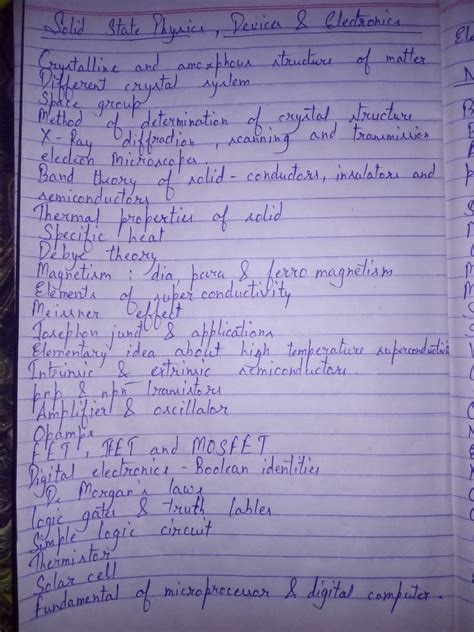 Solid State Physics, Devices & Electronics
Crystalline and amorphous structure of matter
Different crystal system
Space group
Method of determination of crystal structure
X-Ray diffraction, scanning and transmission
electron Microscopes.
Band theory of solid - conductors, insulators and
semiconductors
Thermal properties of solid
Specific heat
Debye theory
Magnetism : dia, para & ferro magnetism
Elements of superconductivity
Meissner effect
Josephon junct & applications
Elementary idea about high temperature superconductivi
Intrinsic & extrinsic semiconductors.
pnp & npn transistors
Amplifier & oscillator
Opamps
FET, JFET and MOSFET
Digital electronics - Boolean identities
De Morgan's laws
logic gates & truth tables
Simple logic circuit
Thermistor
Solar cell
Fundamental of microprocessor & digital computer.
Ele